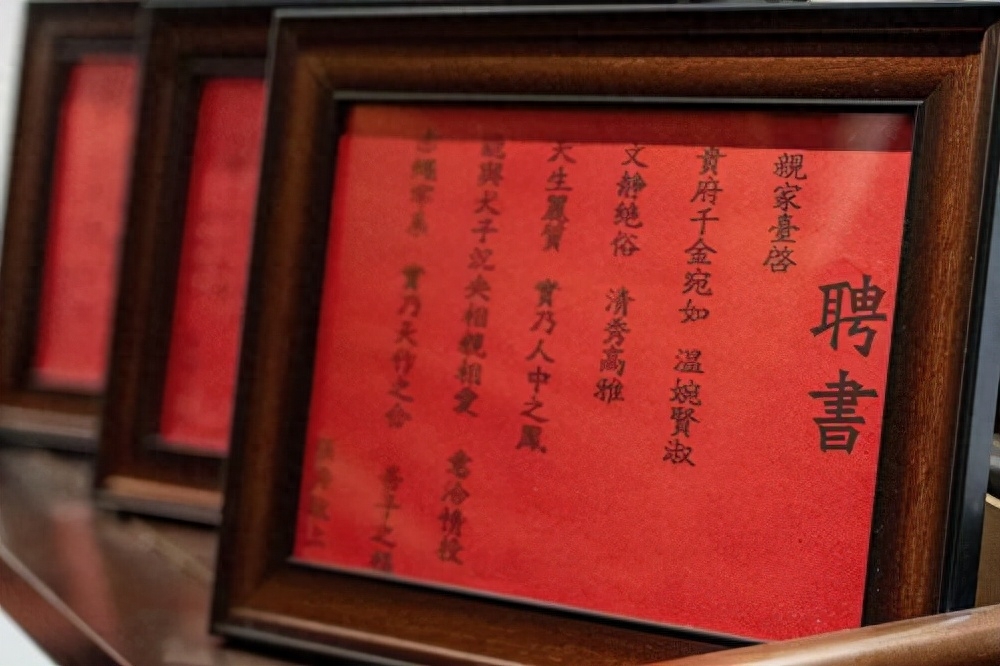 聘書
親家臺啓
貴府千金宛如 溫婉賢淑
文靜絶俗 清秀高雅
天生麗質 實乃人中之鳳
與犬子 央相親相愛 意洽情投
繩牢系 實乃天作之合 子之福
上